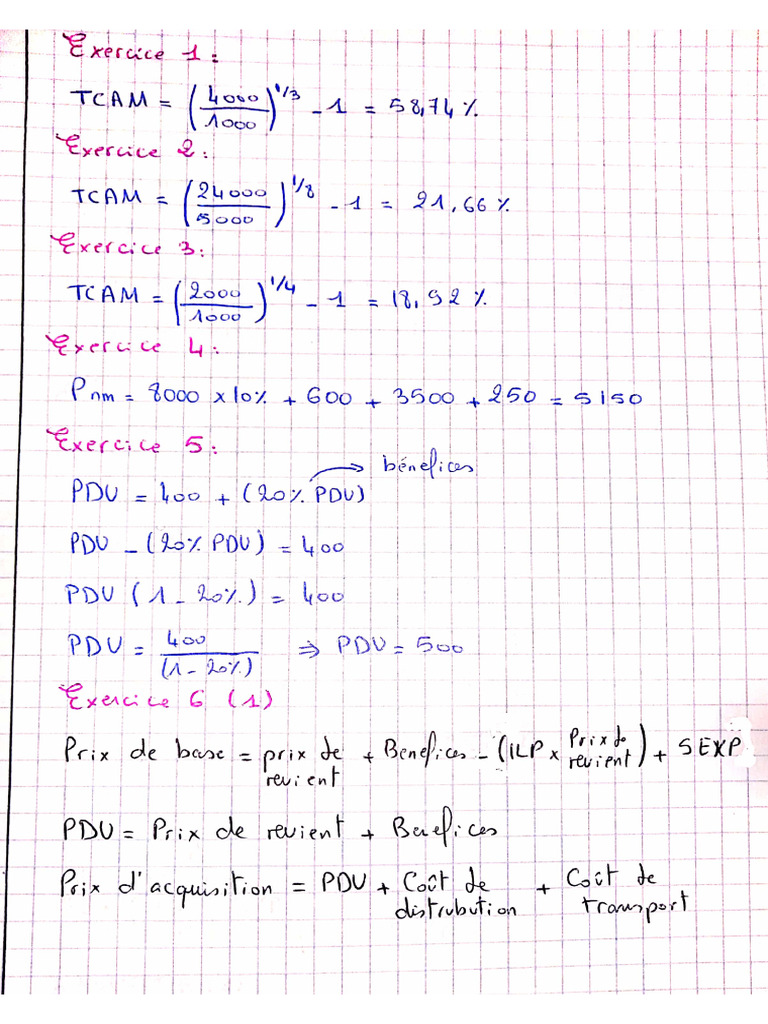 Exercice 1 :
TCAM = (4000/1000)^1/3 - 1 = 58,74 %
Exercice 2 :
TCAM = (24000/5000)^1/8 - 1 = 21,66 %
Exercice 3 :
TCAM = (2000/1000)^1/4 - 1 = 18,92 %
Exercice 4 :
Pnm = 8000 x 10% + 600 + 3500 + 250 = 5150
Exercice 5 :
→ bénefices
PDU = 400 + (20% PDU)
PDU - (20% PDU) = 400
PDU (1 - 20%) = 400
PDU = 400/(1 - 20%) ⇒ PDU = 500
Exercice 6 (1)
Prix de base = prix de revient + Benefices - (ILP x Prix de revient) + SEXP
PDU = Prix de revient + Benefices
Prix d'acquisition = PDU + Coût de distrubution + Coût de transport